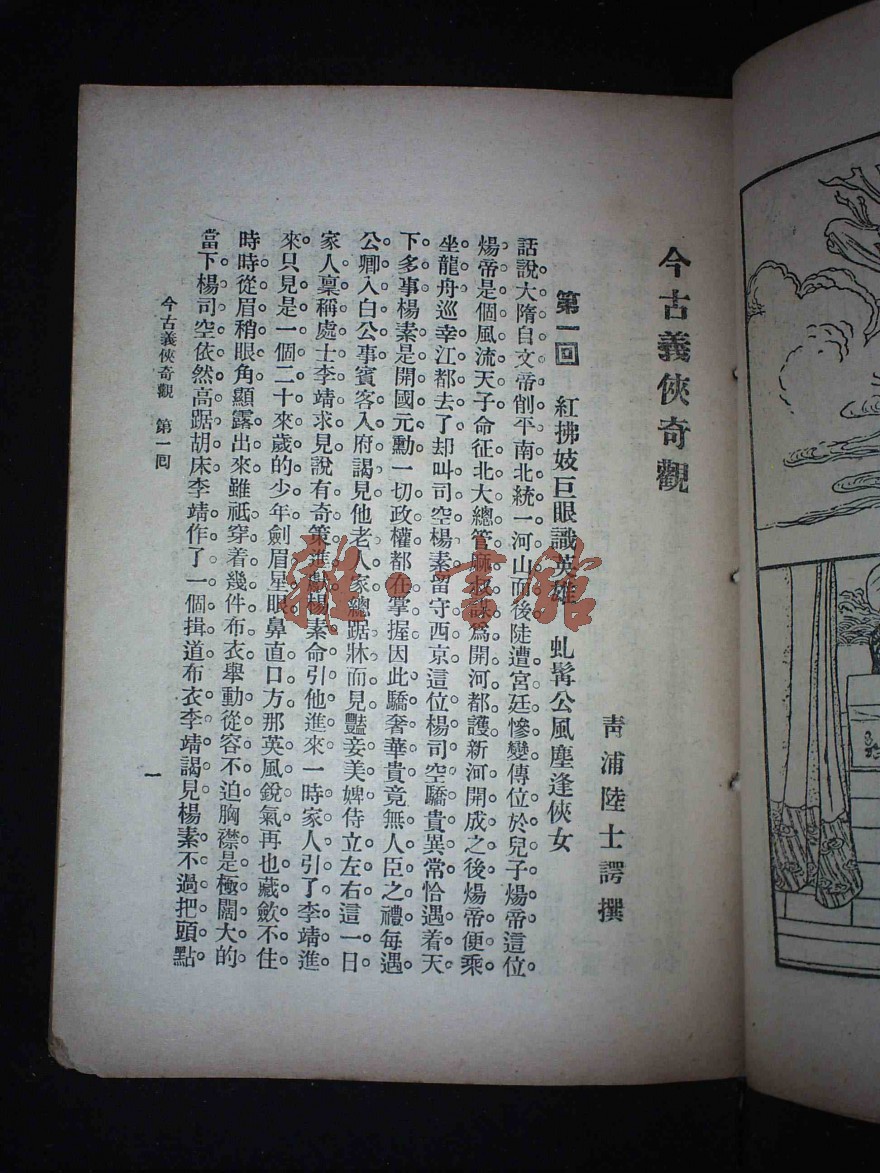 今古義俠奇觀
青浦陸士諤撰
第一回 紅拂妓巨眼識英雄 虬髯公風塵逢俠女
話說大隋自文帝削平南北統一河山而後陡遭宮廷慘變傳位於兒子煬帝這位
煬帝是個風流天子命征北大總管麻叔謀爲開河都護新河開成之後煬帝便乘
坐龍舟巡幸江都去了却叫司空楊素留守西京這位楊司空驕貴異常恰遇着天
下多事楊素是開國元勳一切政權都在掌握因此驕奢華貴竟無人臣之禮每遇
公卿入白公事賓客入府謁見他老人家總踞牀而見豔妾美婢侍立左右這一日
家人稟稱處士李靖求見說有奇策進獻楊素命引他進來一時家人引了李靖進
來只見是一個二十來歲的少年劍眉星眼鼻直口方那英風銳氣再也藏歛不住
時時從眉稍眼角顯露出來雖祇穿着幾件布衣舉動從容不迫胸襟是極闊大的
當下楊司空依然高踞胡床李靖作了一個揖道布衣李靖謁見楊素不過把頭點
今古義俠奇觀 第一回
一
雜·書館